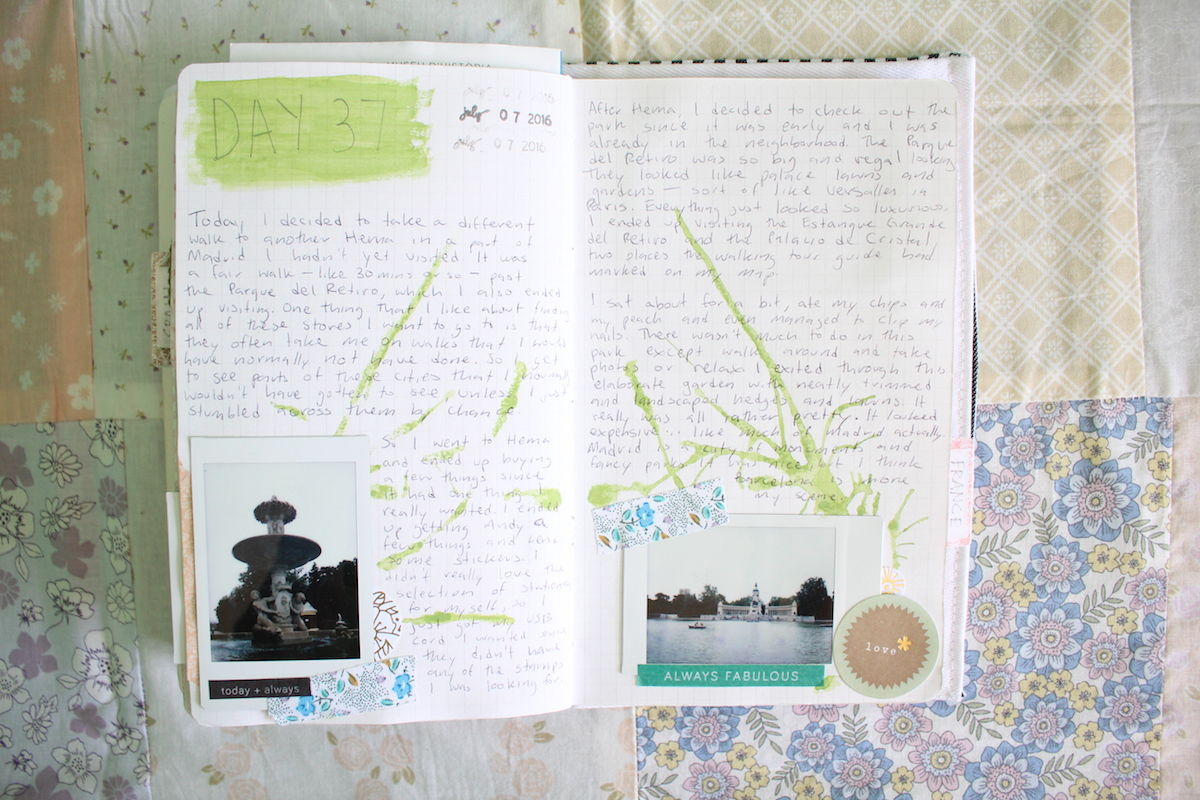 DAY 37
07 2016
july 07 2016
july 07 2016
Today I decided to take a different
walk to another Hema in a part of
Madrid I hadn't yet visited. It was
a fair walk – like 30 mins or so – past
the Parque del Retiro, which I also ended
up visiting. One thing that I like about finding
all of these stores I want to go to is that
they often take me on walks that I would
have normally not have done. So I get
to see parts of these cities that I normally
wouldn't have gotten to see unless I just
stumbled across them by chance.
So I went to Hema
and ended up buying
a few things since
it had one thing I
really wanted. I ended
up getting Andy a
few things and
some stickers. I
didn't really love the
selection of stationery
for myself, so I
just got my USB
cord I wanted and
they didn't have
any of the stamps
I was looking for.
today + always
After Hema, I decided to check out the
park since it was early and I was
already in the neighborhood. The Parque
del Retiro was so big and regal looking.
They looked like palace lawns and
gardens – sort of like Versailles in
Paris. Everything just looked so luxurious.
I ended up visiting the Estanque Grande
del Retiro and the Palacio de Cristal
two places the walking tour guide had
marked on my map.
I sat about for a bit, ate my chips and
my peach and even managed to clip my
nails. There wasn't much to do in this
park except walk around and take
photos or relax. I exited through this
elaborate garden with neatly trimmed
and landscaped hedges and lawns. It
really was all rather pretty. It looked
expensive... like much of Madrid actually.
Madrid is a city of monuments and
fancy parks. It was nice, but I think
Barcelona is more
my scene.
ALWAYS FABULOUS
love
FRANCE